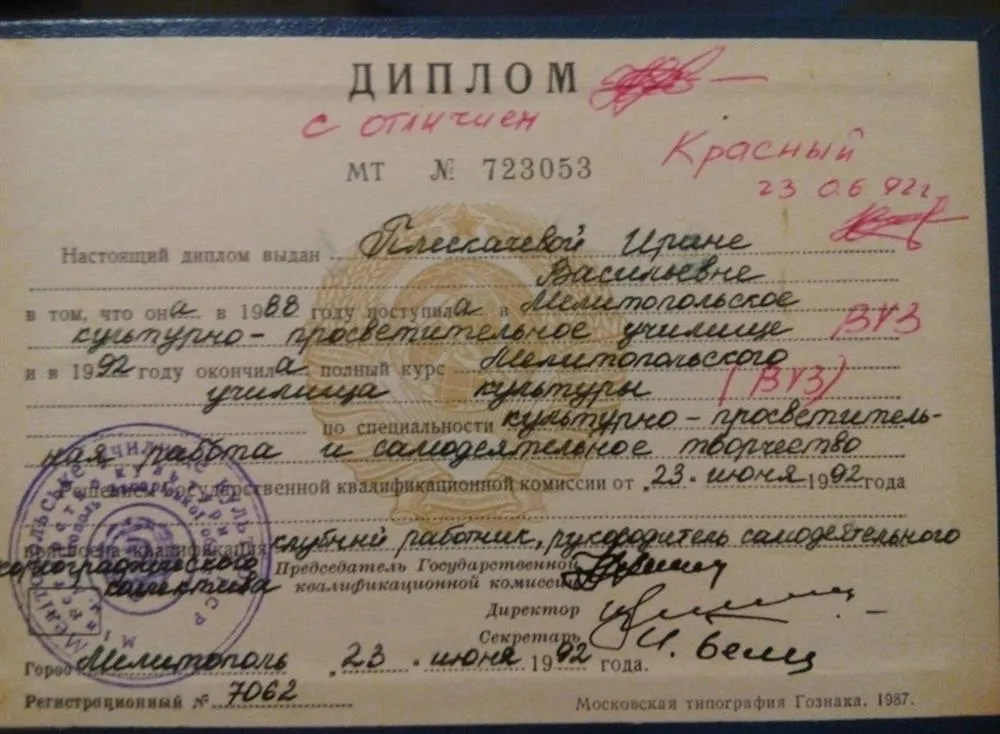 ДИПЛОМ
с отличиен
МТ № 723053
Красный
23 0.6 92г.
Настоящий диплом выдан Плескачевой Ирине
Васильевне
в том, что она в 1988 году поступила в Мелитопольское
культурно-просветительное училище ВУЗ
и в 1992 году окончила полный курс Мелитопольского
училища культуры (ВУЗ)
по специальности культурно-просветитель-
ная работа и самодеятельное творчество
Решением Государственной квалификационной комиссии от „23" июня 1992 года
присвоена квалификация клубный работник, руководитель самодеятельного
хореографического Председатель Государственной
колектива квалификационной комиссии
Директор
Секретарь
Город Мелитополь „23" июня 1992 года.
Регистрационный № 7062
Московская типография Гознака. 1987.